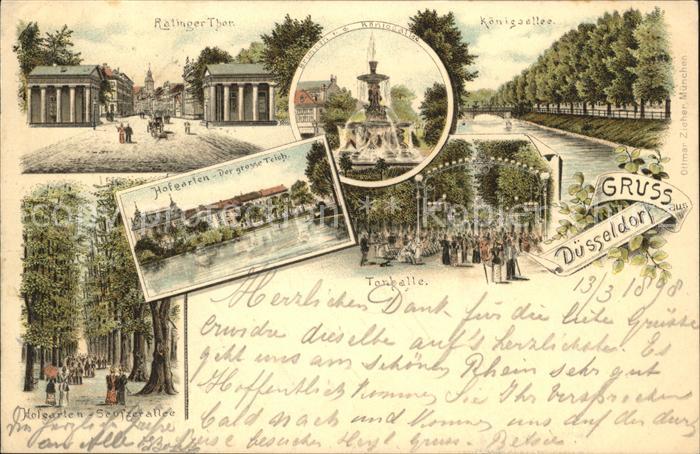 Ratinger Thor.
Königsallee.
Hofgarten - Der grosse Teich.
Tonhalle.
Hofgarten - Seufzerallee
GRUSS
aus
Düsseldorf
Ottmar Zieher, München
13/3 1898
Herzlichen Dank für die liebe Grüsse
erwidre dieselbe auf's herzlichste. Es
geht uns am schönen Rhein sehr gut
Hoffentlich kommen Sie Ihr Versprechen
bald nach und kommen uns auf der
besuchen Herzl. Gruss.
an Alle